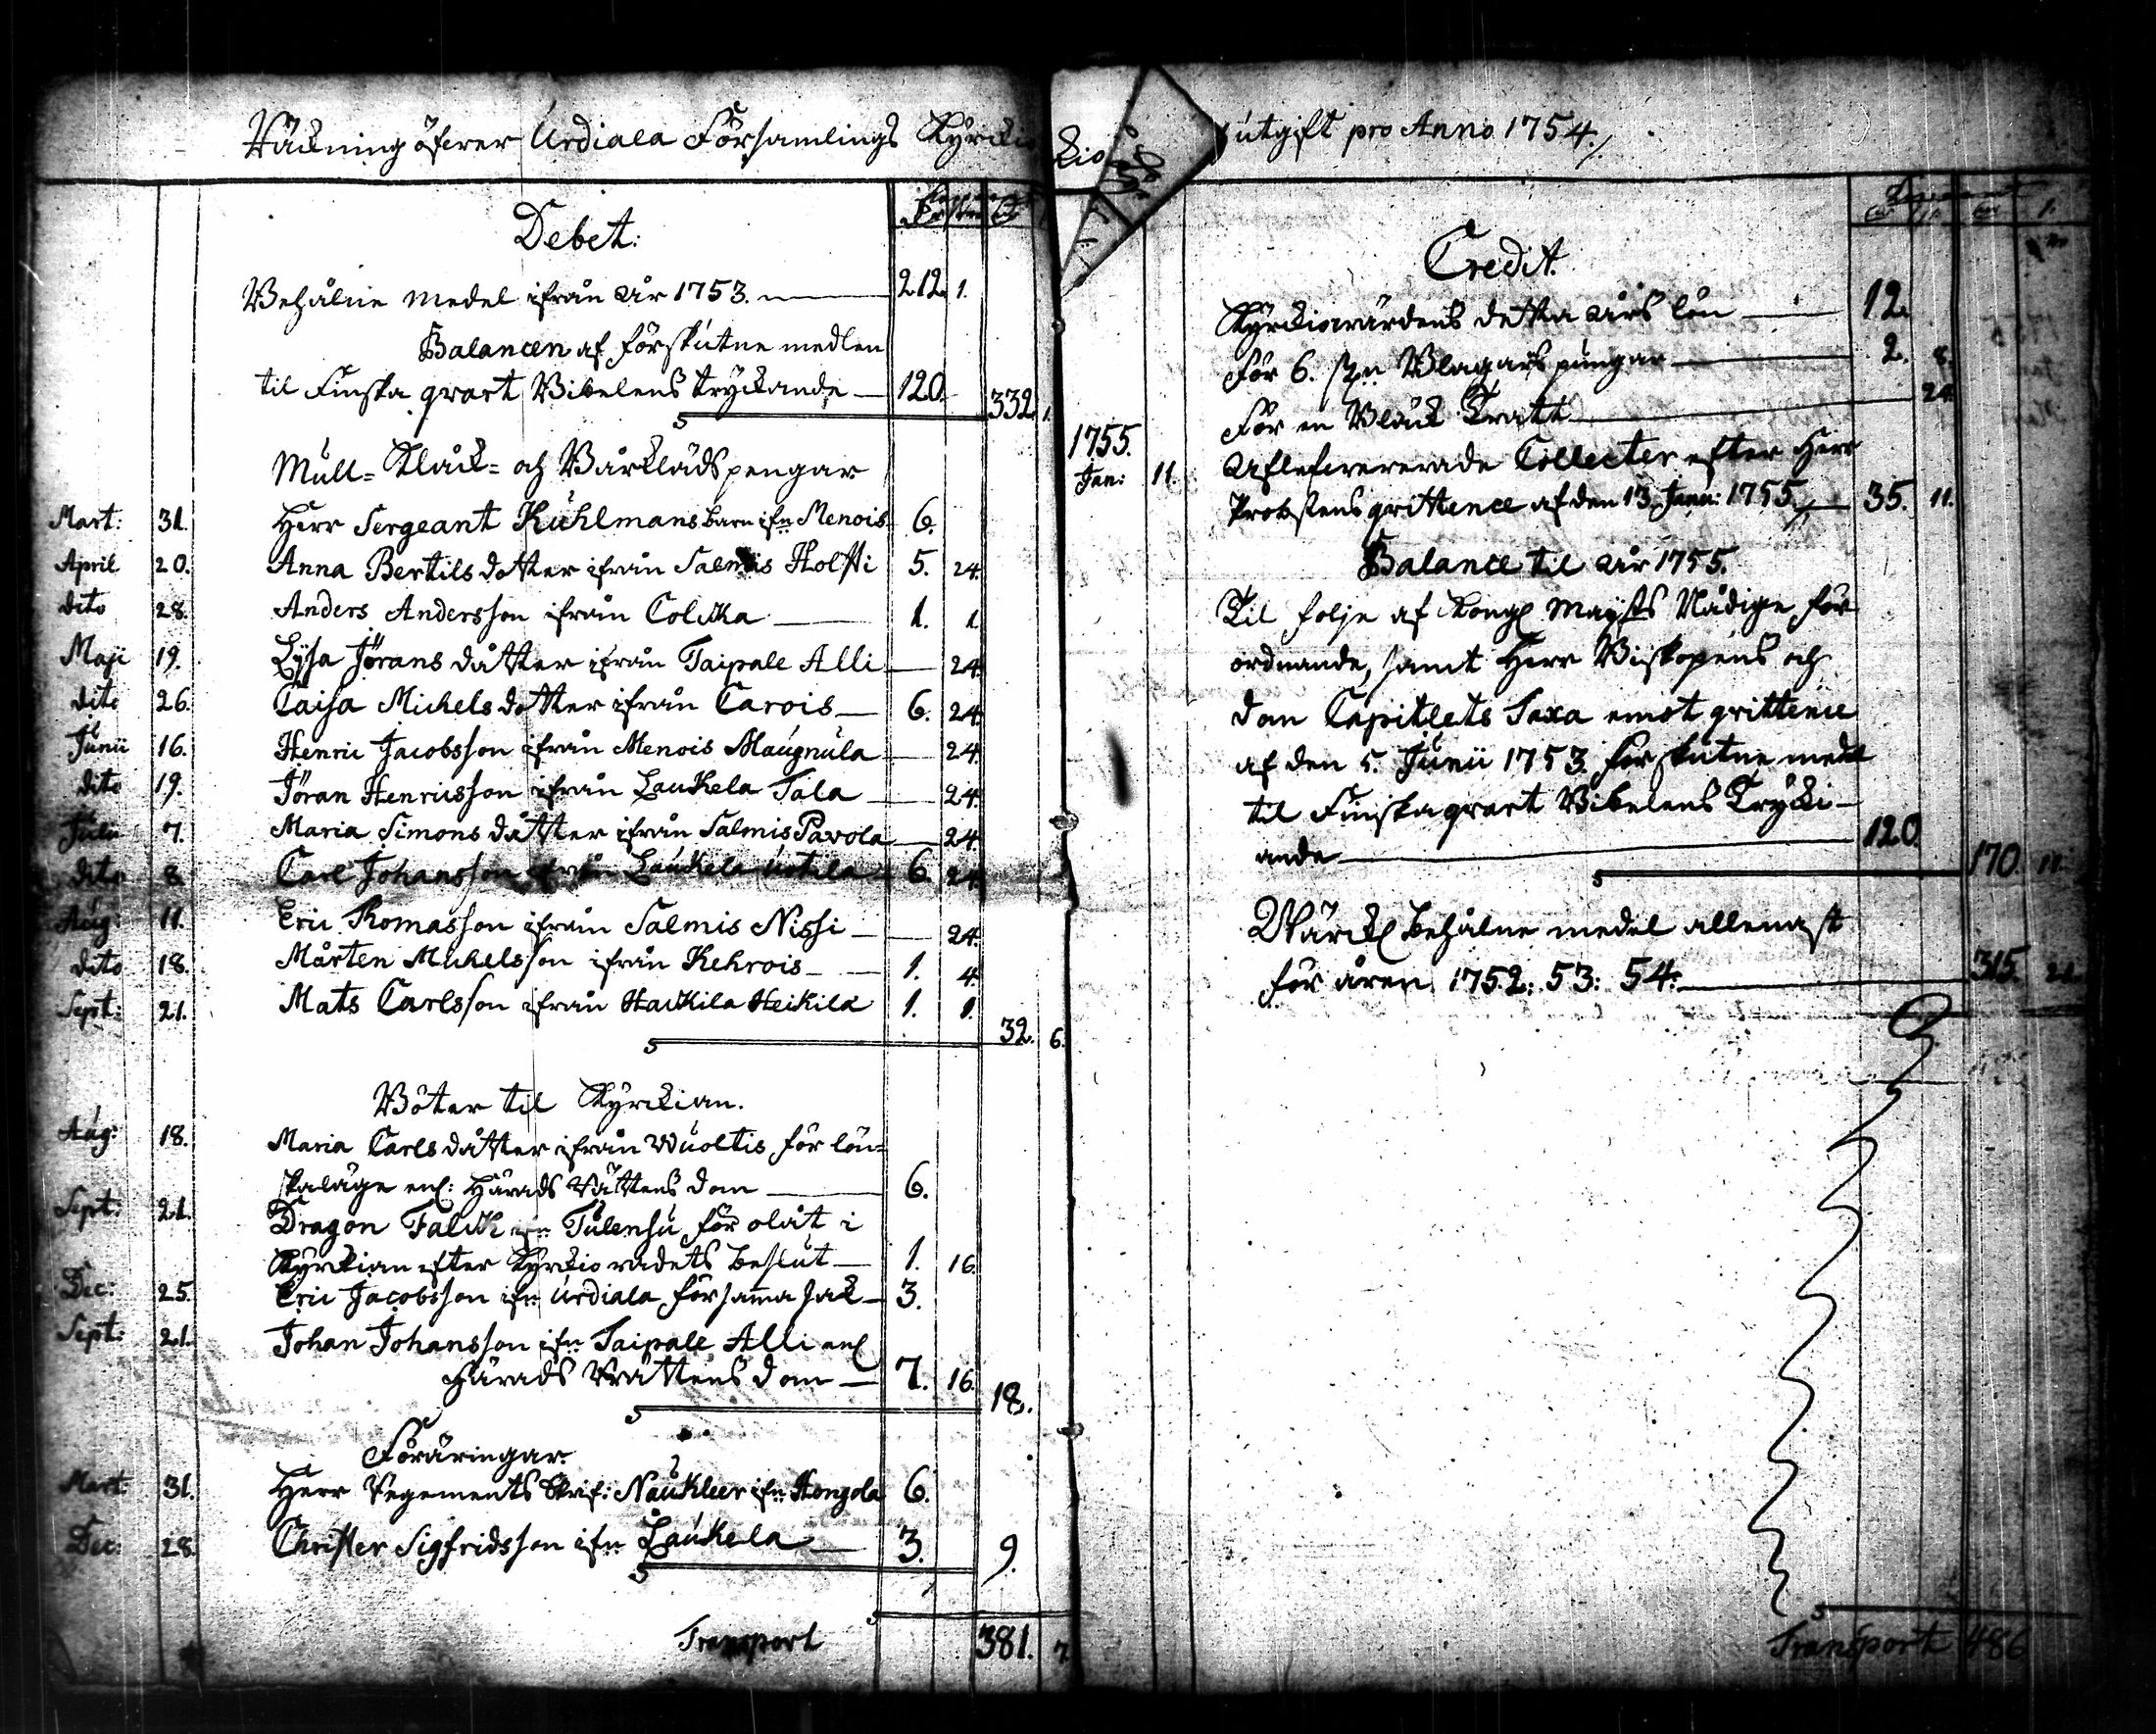 Räckning öfwer Urdiala Församlings Kyrckio
Debet:
Behålne medel ifrån år 1753. 212. 1.
Balancen af förskutne medlen
til Finska qvart Bibelens tryckande 120. 332. 1.
Mull= Kläck= och Bårklädspengar
Mart: 31. Herr Sergeant Kuhlmans barn ifn Menois 6.
April 20. Anna Bertils dotter ifrån Salmis Holsti 5. 24.
dito 28. Anders Andersson ifrån Colcka 1. 1.
Maji 19. Lysa Jörans dåtter ifrån Taipale Alli 24.
dito 26. Caisa Michels dotter ifrån Carois 6. 24.
Junii 16. Henric Jacobsson ifrån Menois Maugnula 24.
dito 19. Jöran Henricsson ifrån Laukela Tala 24.
Julii 7. Maria Simons dåtter ifrån Salmis Pavola 24.
dito 8. Carl Johansson ifrån Laukela Uotila 6. 24.
Aug: 11. Eric Thomasson ifrån Salmis Nissi 24.
dito 18. Mårten Michelsson ifrån Kehrois 1. 4.
Sept: 21. Mats Carlsson ifrån Haickila Heikilä 1. 1.
32. 6.
Böter til Kyrckian.
Aug: 18. Maria Carls dåtter ifrån Wuoltis för lön=
skaläge enl: Härads Rättens dom 6.
Sept: 21. Dragon Falck ifn Tulensu för olåt i
Kyrckian efter Kyrckio rådets beslut 1. 16.
Dec: 25. Eric Jacobsson ifn Urdiala för samma sak 3.
Sept: 21. Johan Johansson ifn Taipale Alli enl
Härads Rättens dom 7. 16.
18.
Föräringar.
Mart: 31. Herr Regements Skrif: Naukleer ifn Hongola 6.
Dec: 28. Christer Sigfridsson ifn Laukela 3. 9.
Transport 381. 7.
utgift pro Anno 1754.
Credit.
Kyrckiowärdens detta års lön 12.
För 6. st:n Klagars pungar 2. 8.
För en Bläck Tratt 24.
1755. Jan: 11. Aflefwererade Collecter efter Herr
Probstens qvittence af den 13. Janu: 1755. 35. 11.
Balance til år 1755.
Til folje af Kongl Mayts Nådige för
ordnande, samt Herr Biskopens och
Dom Capitlets Taxa emot qvittence
af den 5. Junii 1753. förskutne medel
til Finska qvart Bibelens Trycki-
ande 120. 170. 11.
Wärckl behålne medel allenast
för åren 1752: 53: 54: 315.
Transport 486